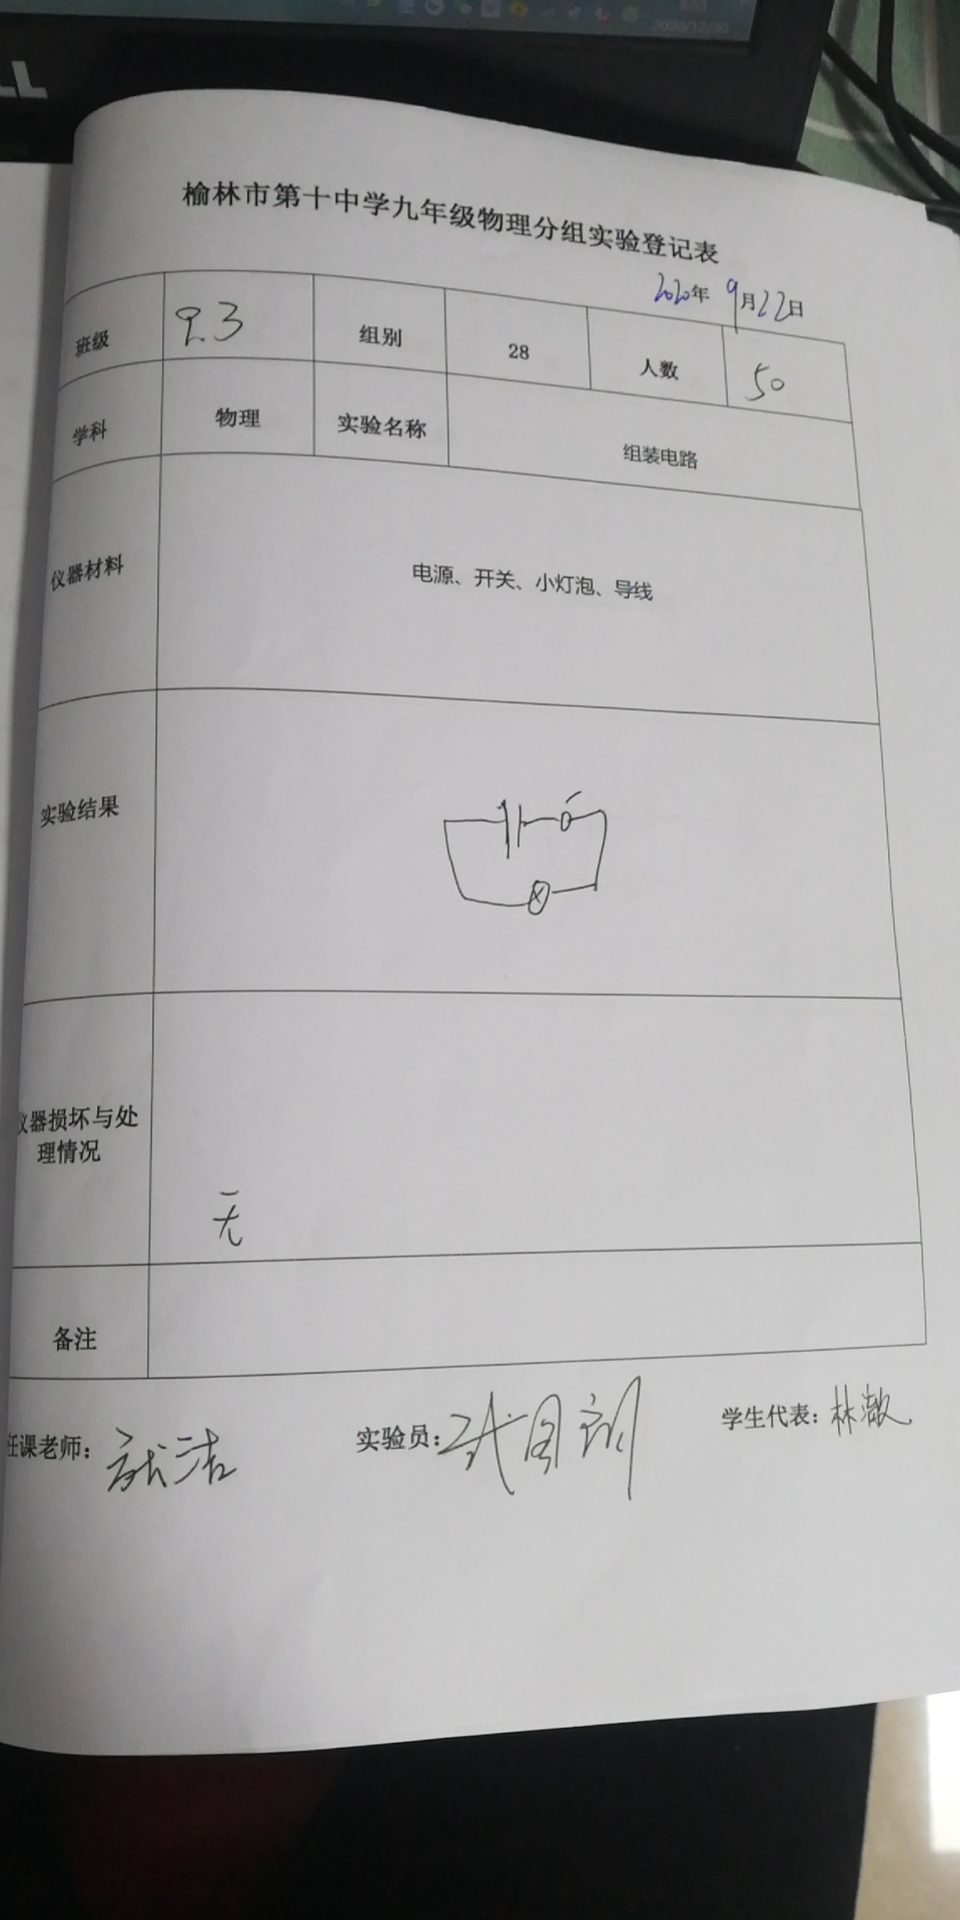 榆林市第十中学九年级物理分组实验登记表
2020年 9月22日
班级 9.3 组别 28 人数 50
学科 物理 实验名称 组装电路
仪器材料 电源、开关、小灯泡、导线
实验结果
仪器损坏与处
理情况
无
备注
任课老师: 实验员: 学生代表: 林